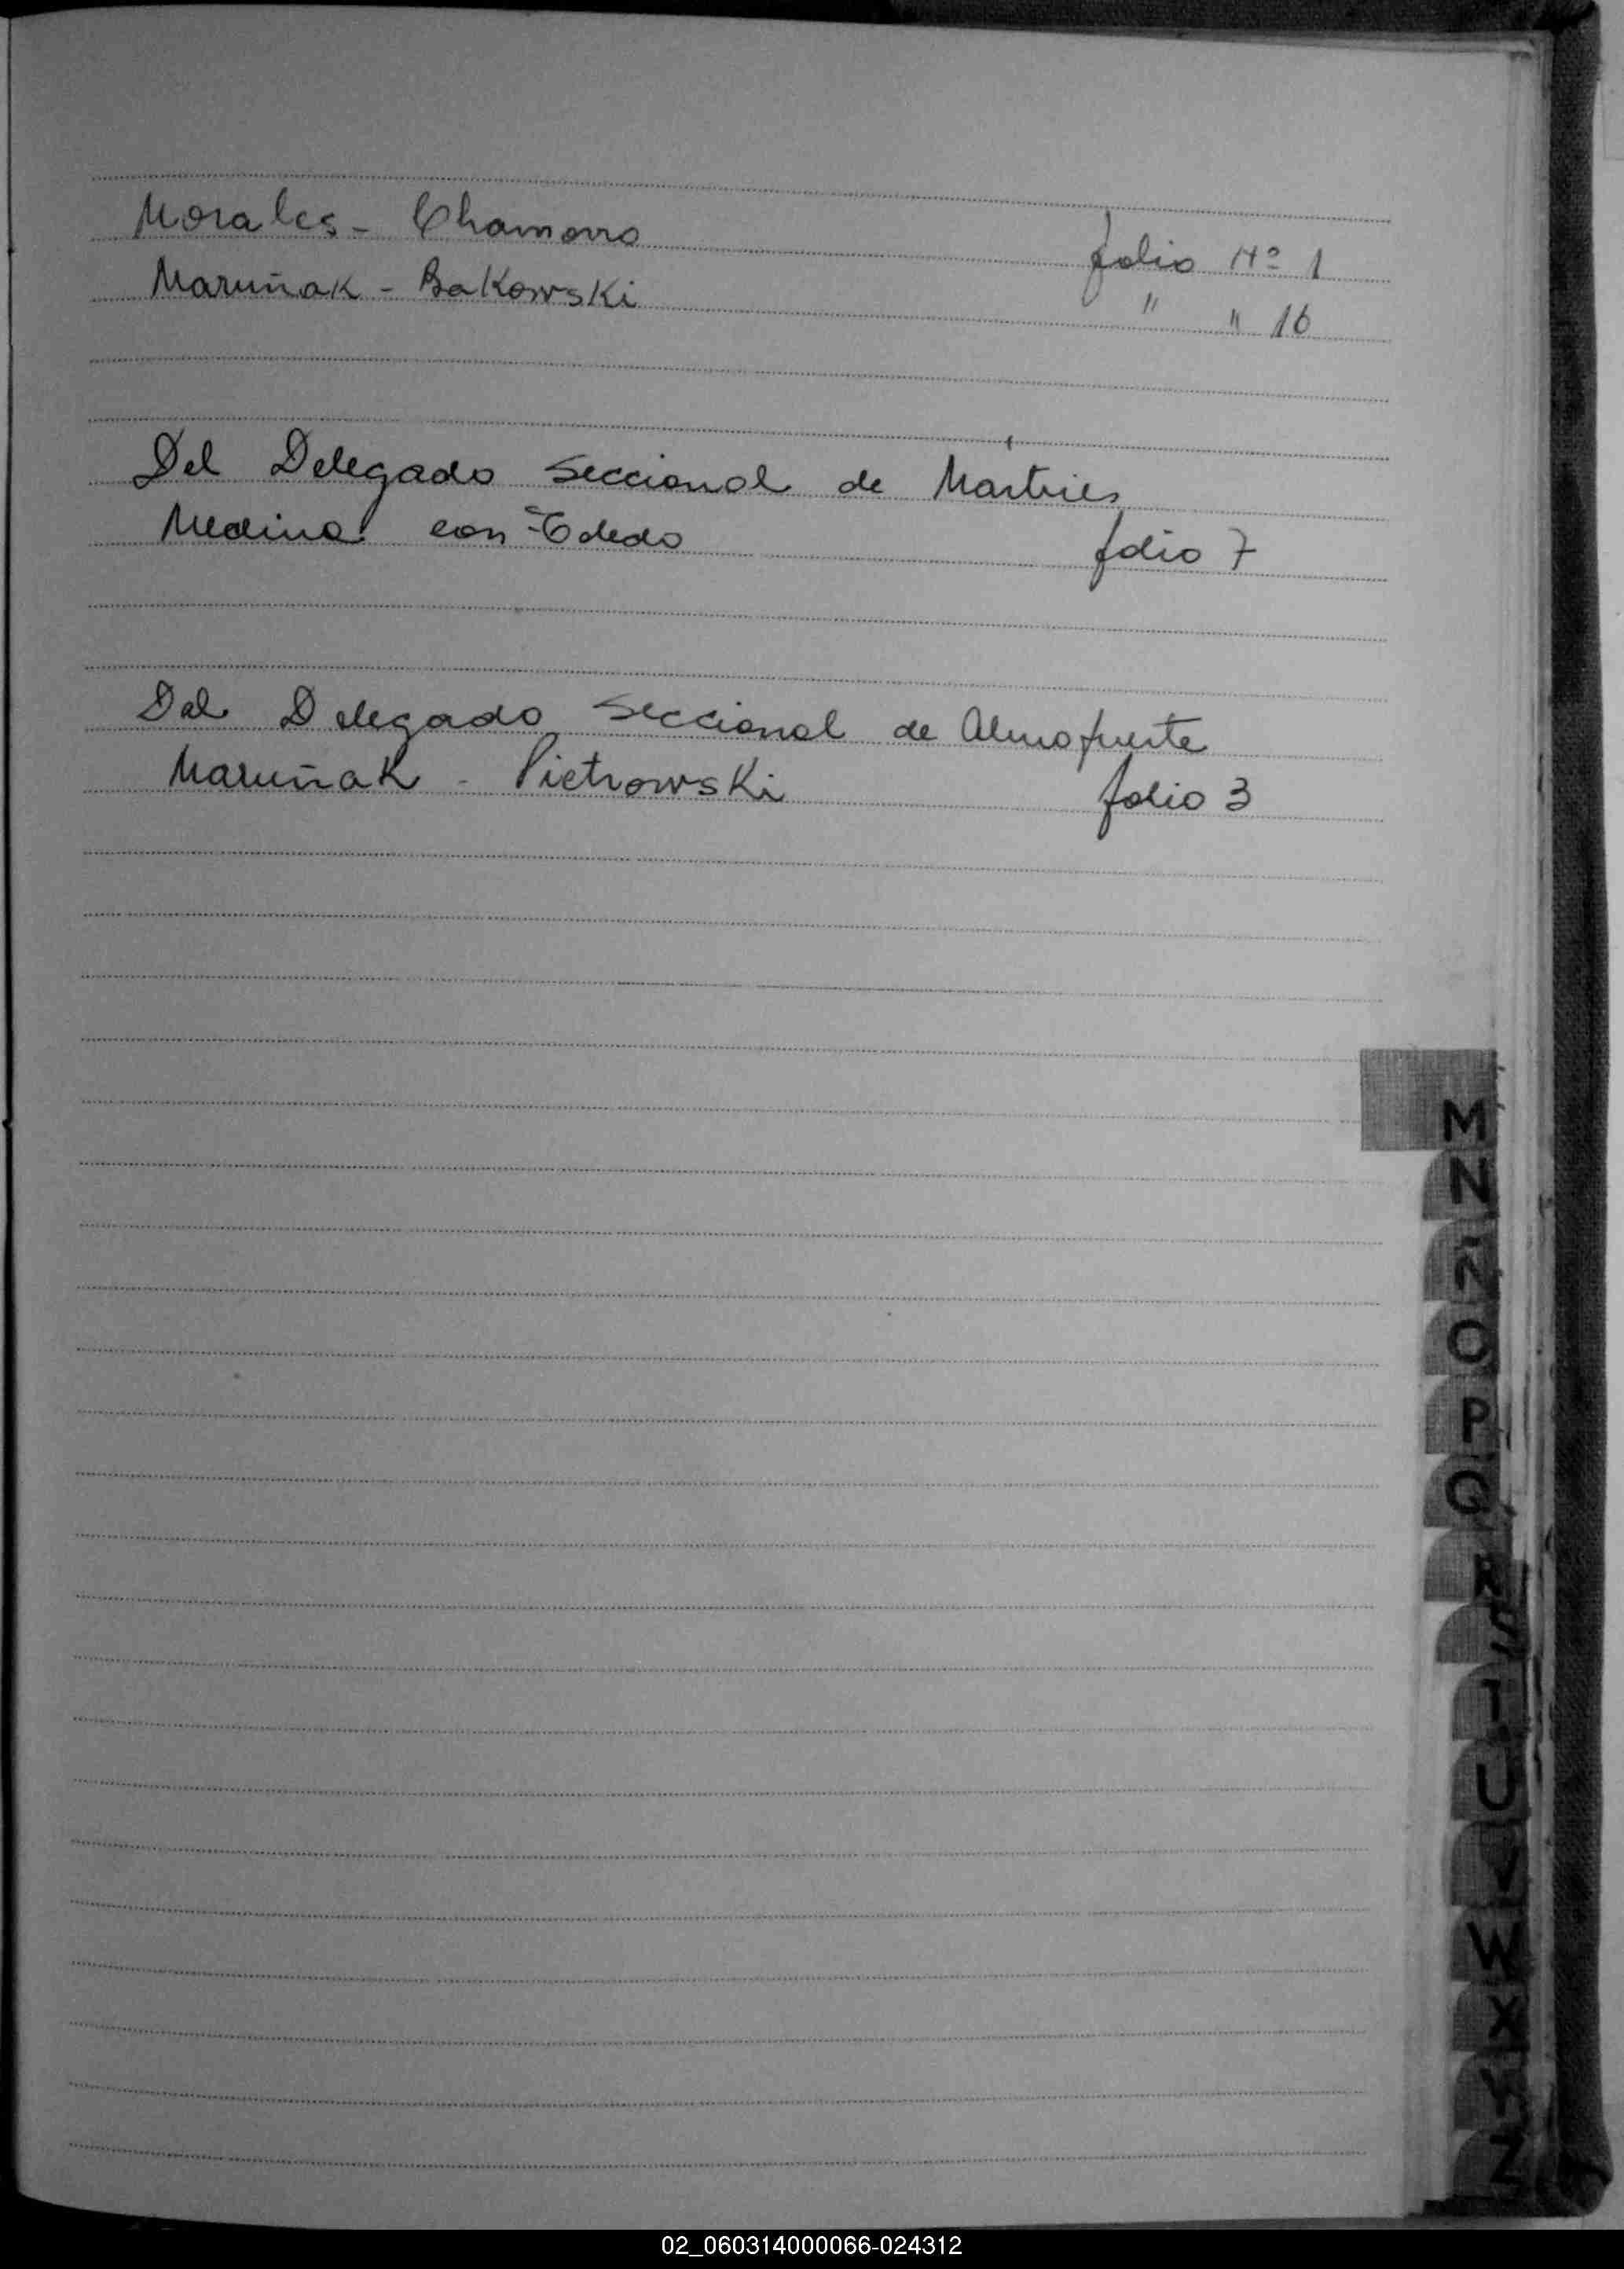 Morales - Chamorro folio Nº 1
Maruñak - Bakowski " " 16
Del Delegado Seccional de Mártires
Medina con Toledo folio 7
Del Delegado Seccional de Almafuerte
Maruñak - Pietrowski folio 3
M
N
Ñ
O
P
Q
R
S
T
U
V
W
X
Y
Z
02_060314000066-024312